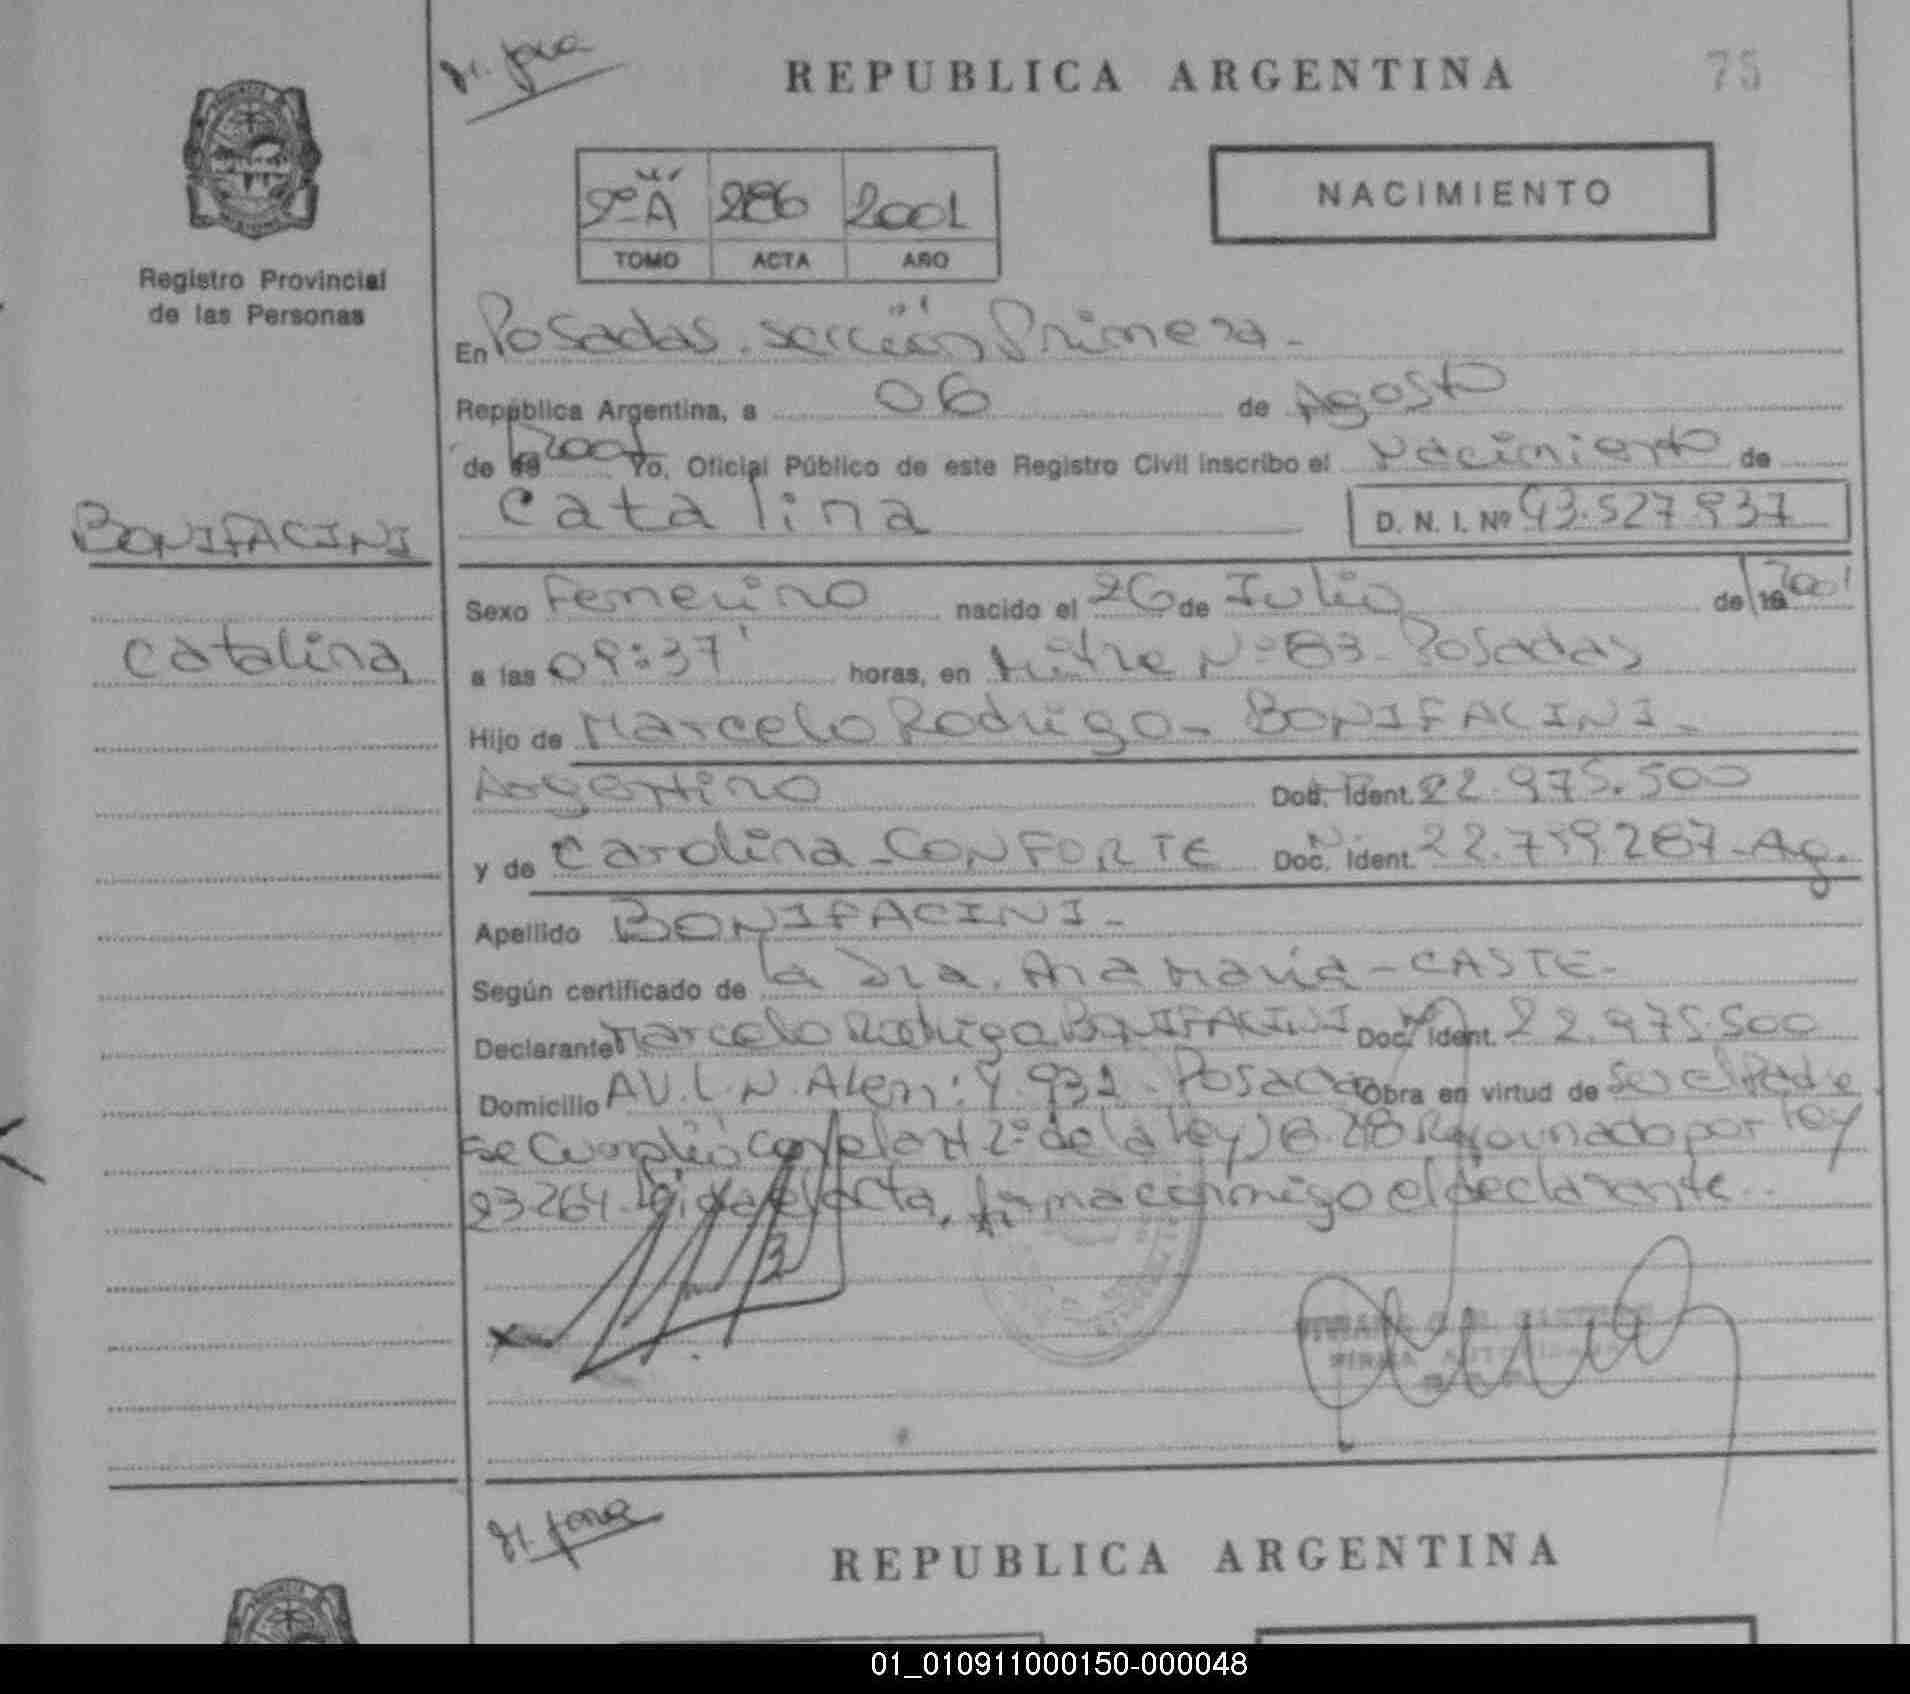 REPUBLICA ARGENTINA
75
2º A 286 2001
TOMO ACTA AÑO
NACIMIENTO
Registro Provincial
de las Personas
En Posadas. sección Primera -
República Argentina, a 06 de Agosto
de 19 2001 Yo, Oficial Público de este Registro Civil inscribo el Nacimiento de
Catalina D. N. I. Nº 43.527.937
BONIFACINI
Catalina
Sexo Femenino nacido el 26 de Julio de 19 2001
a las 09:37' horas, en Mitre Nº 83 - Posadas
Hijo de Marcelo Rodrigo - BONIFACINI -
Argentino Doc. Ident. 22.975.500
y de Carolina - CONFORTE Doc. Ident. 22.759267 - Ag.
Apellido BONIFACINI -
Según certificado de la Dra. Ana María - CASTE -
Declarante Marcelo Rodrigo BONIFACINI Doc. Ident. 22.975.500
Domicilio AV. L. N. Alem: 4.932 - Posadas Obra en virtud de ser el Padre
se Cumplió con el art 2º de la Ley 18.248 Reformado por Ley
23.264. Leida el acta, firma conmigo el declarante.
FIRMA AUTORIZADA
REPUBLICA ARGENTINA
01_010911000150-000048